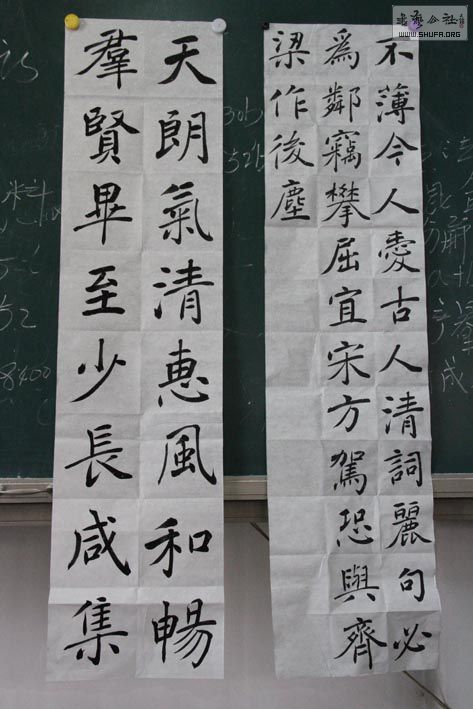 不薄今人愛古人清詞麗句必
為鄰竊攀屈宜宋方駕恐與齊
梁作後塵
天朗氣清惠風和暢
羣賢畢至少長咸集
書藝公社
WWW.SHUFA.ORG
8400